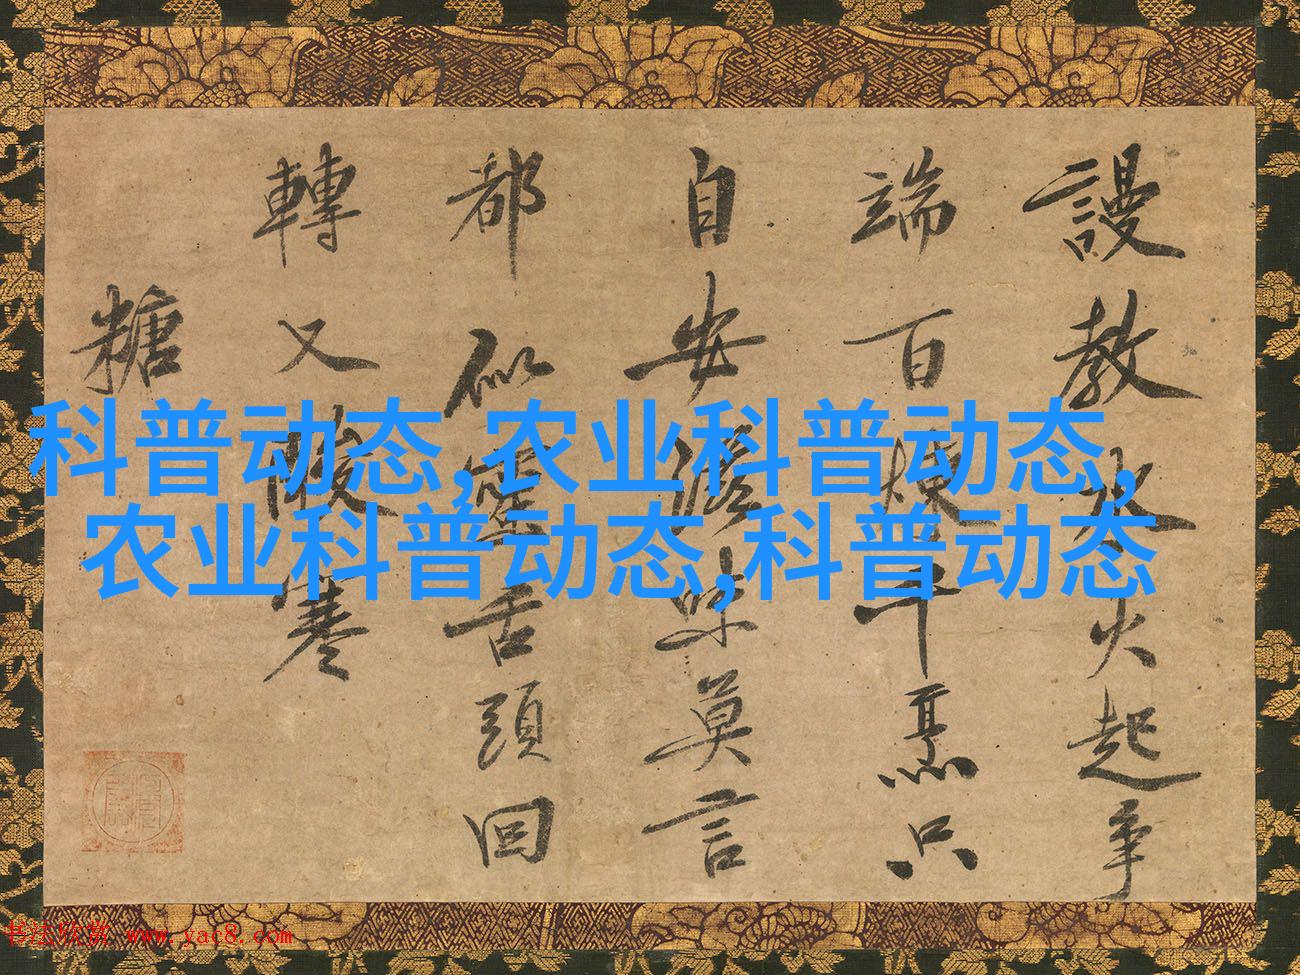 謾教水火起争
端百煉千熏只
自安滋味莫言
都似蜜舌頭回
轉又酸寒
糖
科普动态,农业科普动态,
农业科普动态,科普动态
书法欣赏 www.yac8.com